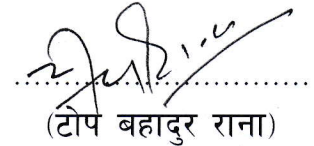 (टोप बहादुर राना)